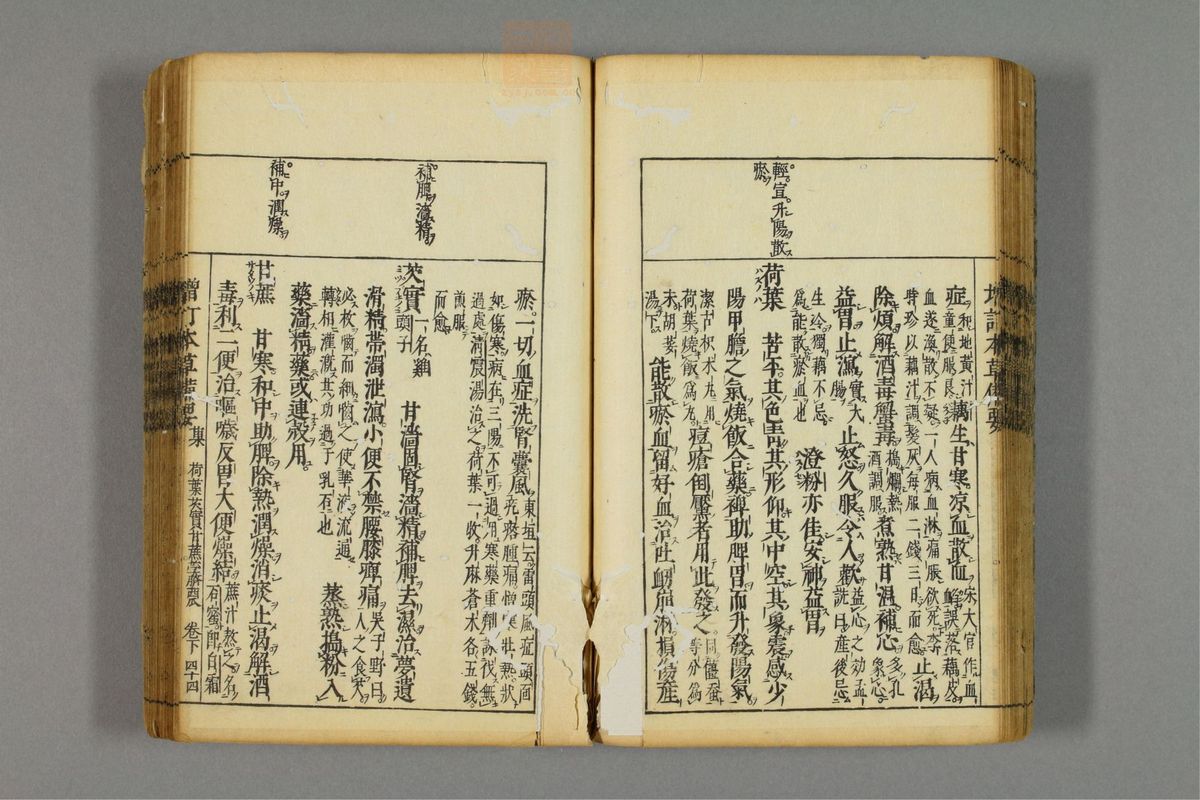 輕宣升陽散
瘀
症和地黃汁童便服良 藕生甘寒涼血散血宋大官作血䘓誤落藕皮
血遂渙散不凝一人病血淋痛脹欲死李時珍以藕汁調髮灰每服二錢三日而愈 止渴
除煩解酒毒蟹毒搗爛熱酒調服 煮熟甘溫補心多孔象心
益胃止瀉實大腸止怒久服令人歡益心之効孟詵曰產後忌
生冷獨藕不忌爲能散瘀血也 澄粉亦佳安神益胃
荷葉 苦平其色青其形仰其中空其象震感少
陽甲膽之氣燒飯合藥裨助脾胃而升發陽氣
潔古枳朮丸用荷葉燒飯爲丸 痘瘡倒黶者用此發之同殭蠶等分爲
末胡荽湯下 能散瘀血留好血治吐衄崩淋損傷產
補脾濇精
補中潤燥
瘀一切血症洗腎囊風東垣云雷頭風症頭面
疙瘩腫痛憎寒壯熱狀如傷寒病在三陽不可過用寒藥重劑誅伐無
過處清震湯治之荷葉一枚升麻蒼朮各五錢煎服而愈
芡實一名雞頭子 甘濇固腎濇精補脾去濕治夢遺
滑精帶濁泄瀉小便不禁腰膝痹痛吳子野曰人之食芡
必枚嚙而細嚼之使華液流通轉相灌漑其功過于乳石也 蒸熟搗粉入
藥濇精藥或連殼用
甘蔗 甘寒和中助脾除熱潤燥消痰止渴解酒
毒利二便治嘔噦反胃大便燥結蔗汁熬之名石蜜卽白霜
增訂本草備要 集 荷葉芡實甘蔗 卷下 四十四